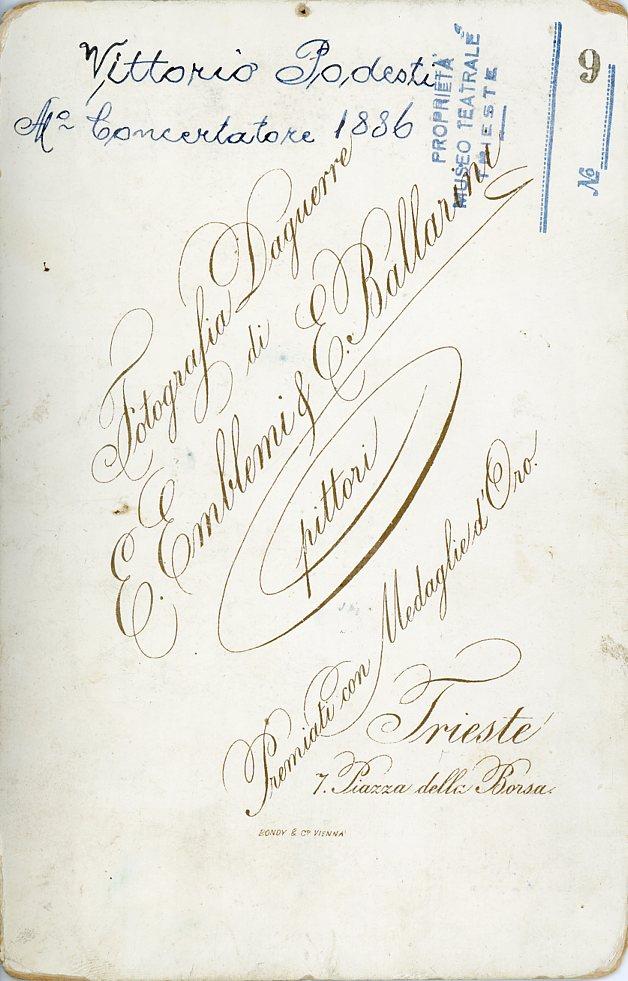 Vittorio Podesti
Mº Concertatore 1886
PROPRIETÀ
MUSEO TEATRALE
TRIESTE
No 9
Fotografia Daguerre
di
E. Emblemi & E. Ballarini
pittori
Premiati con Medaglie d'Oro.
Trieste
7. Piazza della Borsa.
BONDY & Cº VIENNA